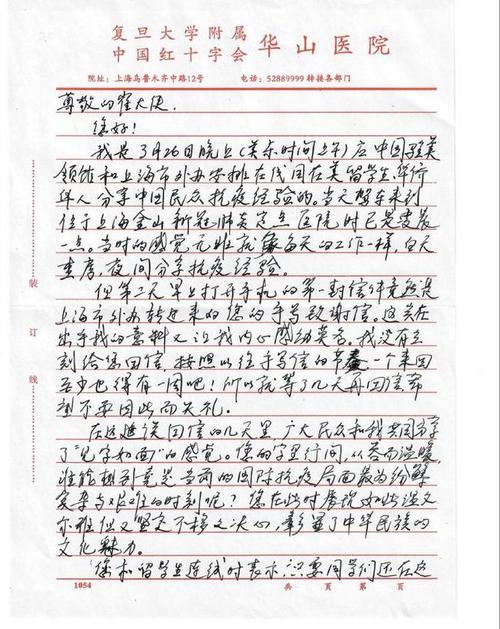 复旦大学附属
中国红十字会 华山医院
院址：上海乌鲁木齐中路12号 电话：52889999转接各部门
尊敬的崔大使，
您好！
我是3月26日晚上（美东时间上午）应中国驻美
领馆和上海市外办安排在线同在美留学生、华侨
华人分享中国民众抗疫经验的。当天驾车来到
位于上海金山新冠肺炎定点医院时已是凌晨
一点。当时的感觉无非我每天的工作一样，白天
查房，夜间分享抗疫经验。
但第二天早上打开手机的第一封信件竟然是
上海市外办转过来的您的手写致谢信。这实在
出乎我的意料又让我内心感动莫名。我没有立
刻给您回信，按照以往手写信的节奏一个来回
至少也得有一周吧！所以我等了几天再回信，希
望不要因此而失礼。
在这延误回信的几天里，广大民众和我共同分享
了“见字如面”的感觉。您的字里行间，从容而温暖，
谁能想到竟是当两国的国际抗疫局面最为纷繁
复杂与艰难的时刻呢？您在此时展现如此温文
尔雅但又坚定不移之决心，彰显了中华民族的
文化魅力。
您和留学生连线时表示，只要同学们还在这
装
订
线
1054 共 页 第 页